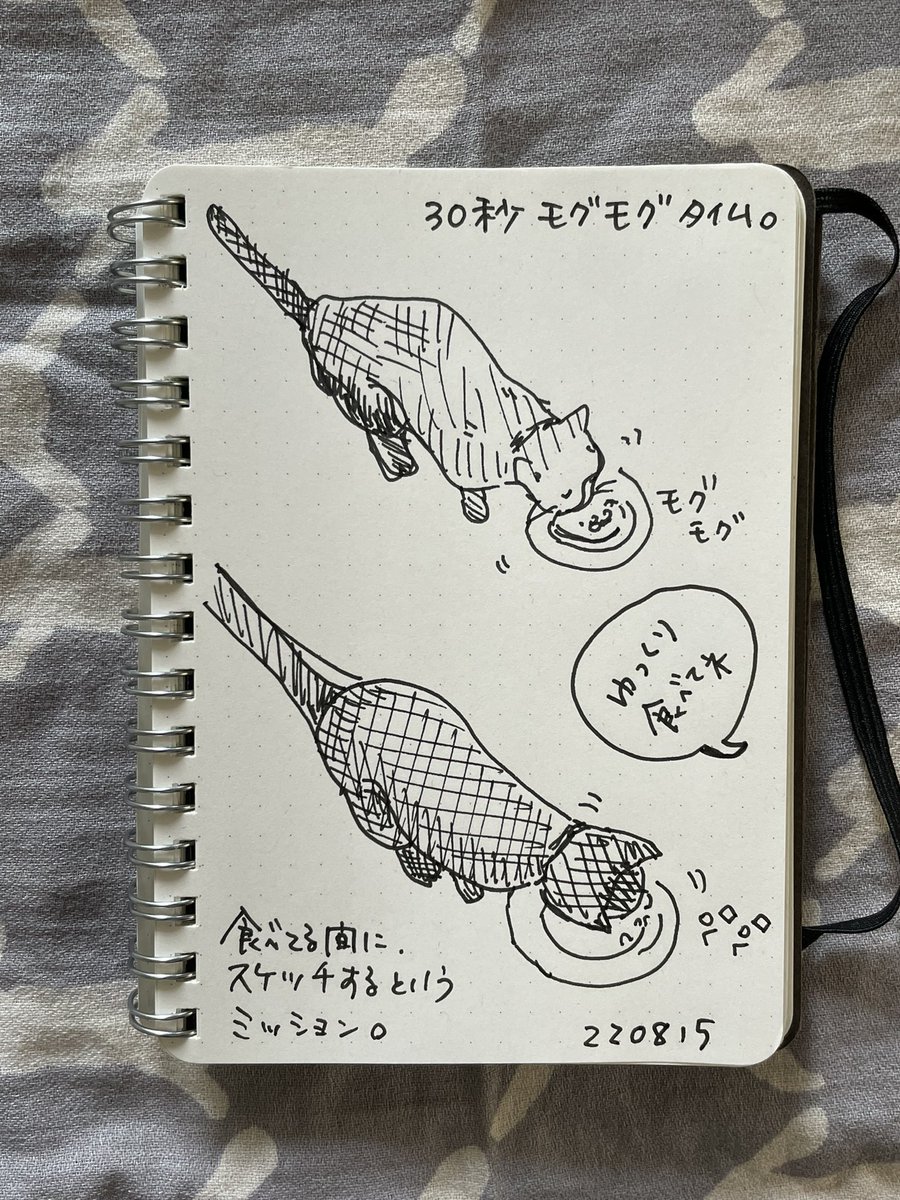 30秒 モグモグ タイム。
モグ
モグ
ゆっくり
食べてネ
食べてる間に、
スケッチするという
ミッション。
220815